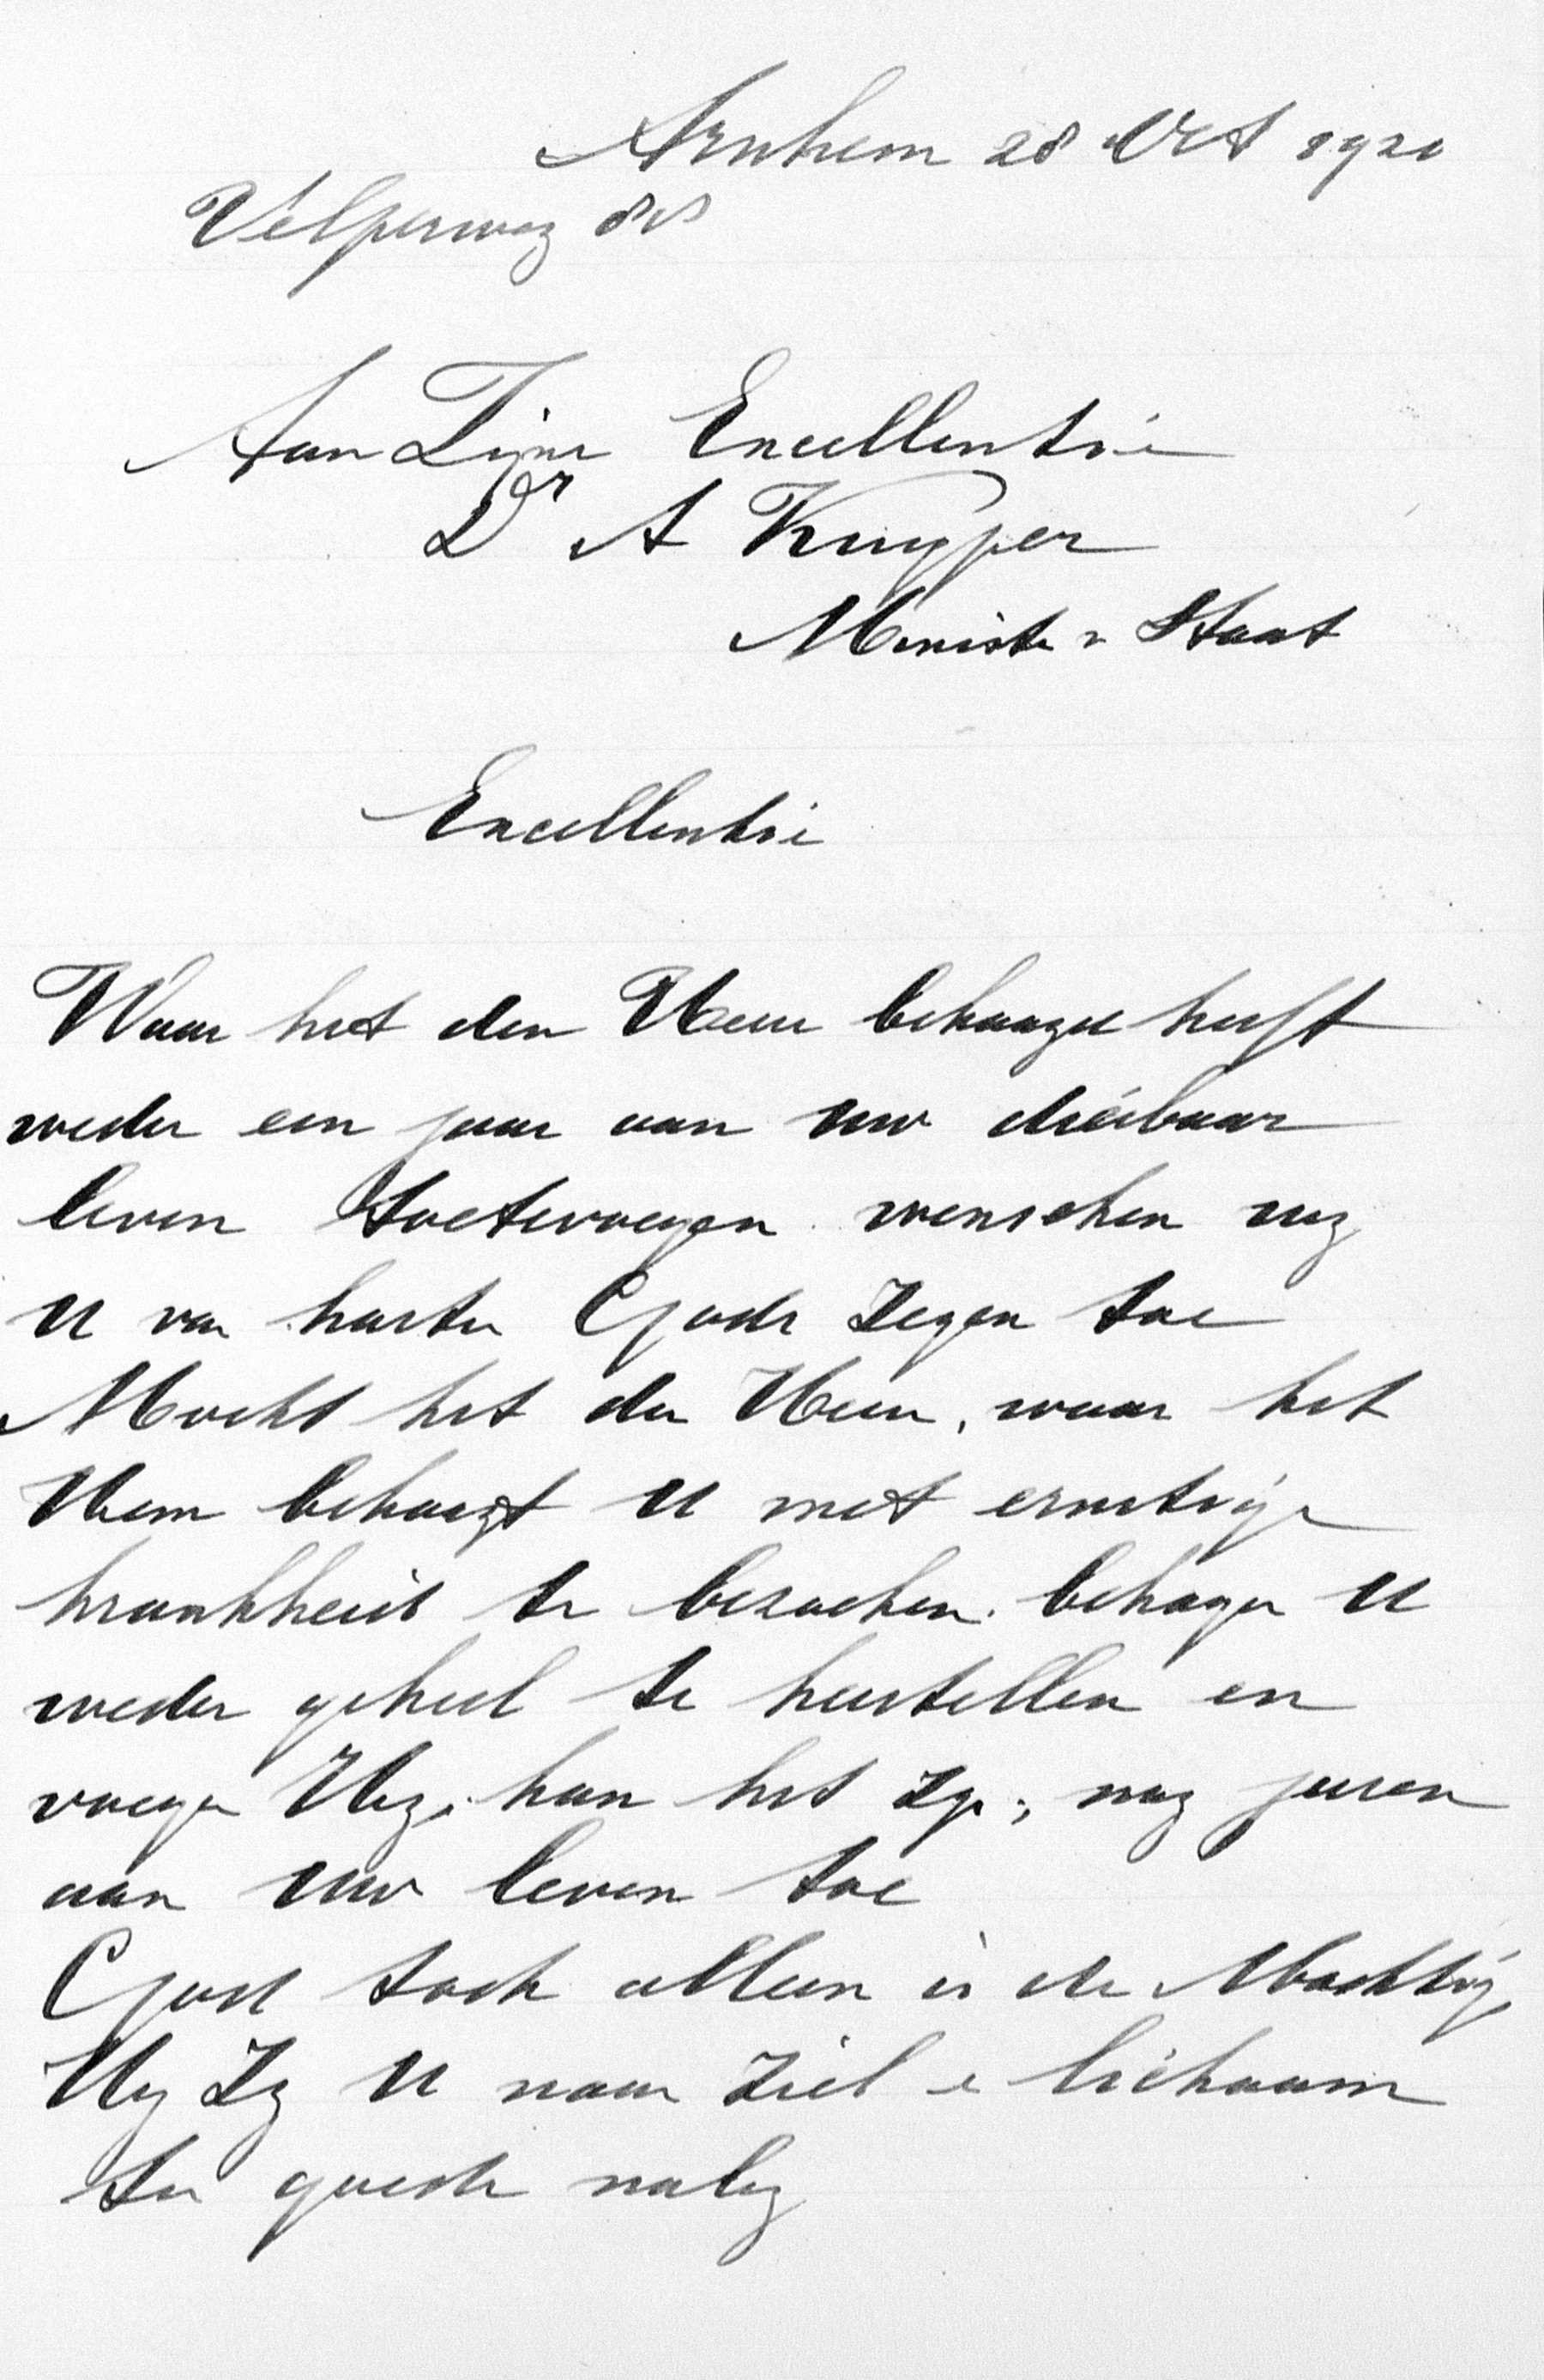 Arnhem 28 Oct 1920
Velperweg 88
Aan Zijne Excellentie
Dr A Kuyper
Minister v Staat
Excellentie
Waar het den Heere behaagd heeft
weder een jaar aan uw dierbaar
leven toetevoegen wenschen wij
U van harte Gods Zegen toe
Mocht het den Heere, waar het
Hem behaagt U met ernstige
krankheid te bezoeken behagen U
weder geheel te herstellen en
voege Hij, kan het zijn, nog jaren
aan uw leven toe
God toch alleen is de Machtige
Hij Zij U naar Ziel en lichaam
ten goede nabij